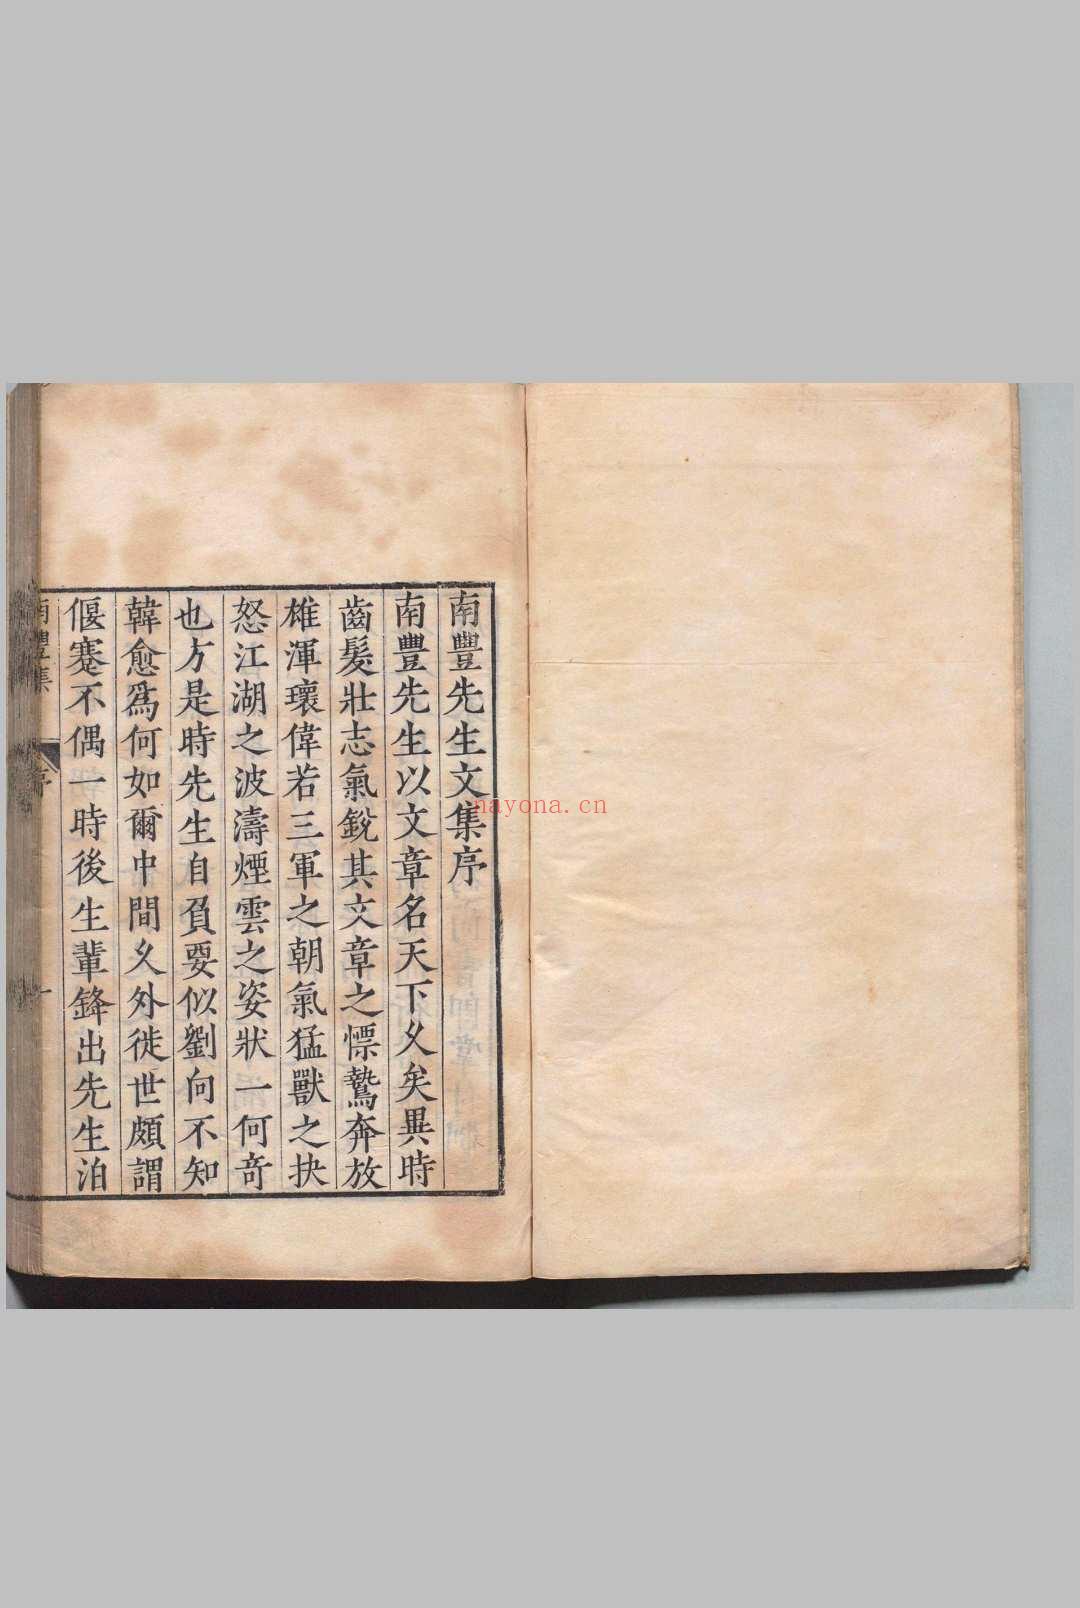 南豐先生文集序
南豐先生以文章名天下乆矣異時
齒髮壯志氣鋭其文章之慓鷙奔放
雄渾瓌偉若三軍之朝氣猛獸之抉
怒江湖之波濤煙雲之姿狀一何奇
也方是時先生自負要似劉向不知
韓愈爲何如爾中間乆外徙世頗謂
偃蹇不偶一時後生輩鋒出先生泊
南豐集
序
一
nayona.cn